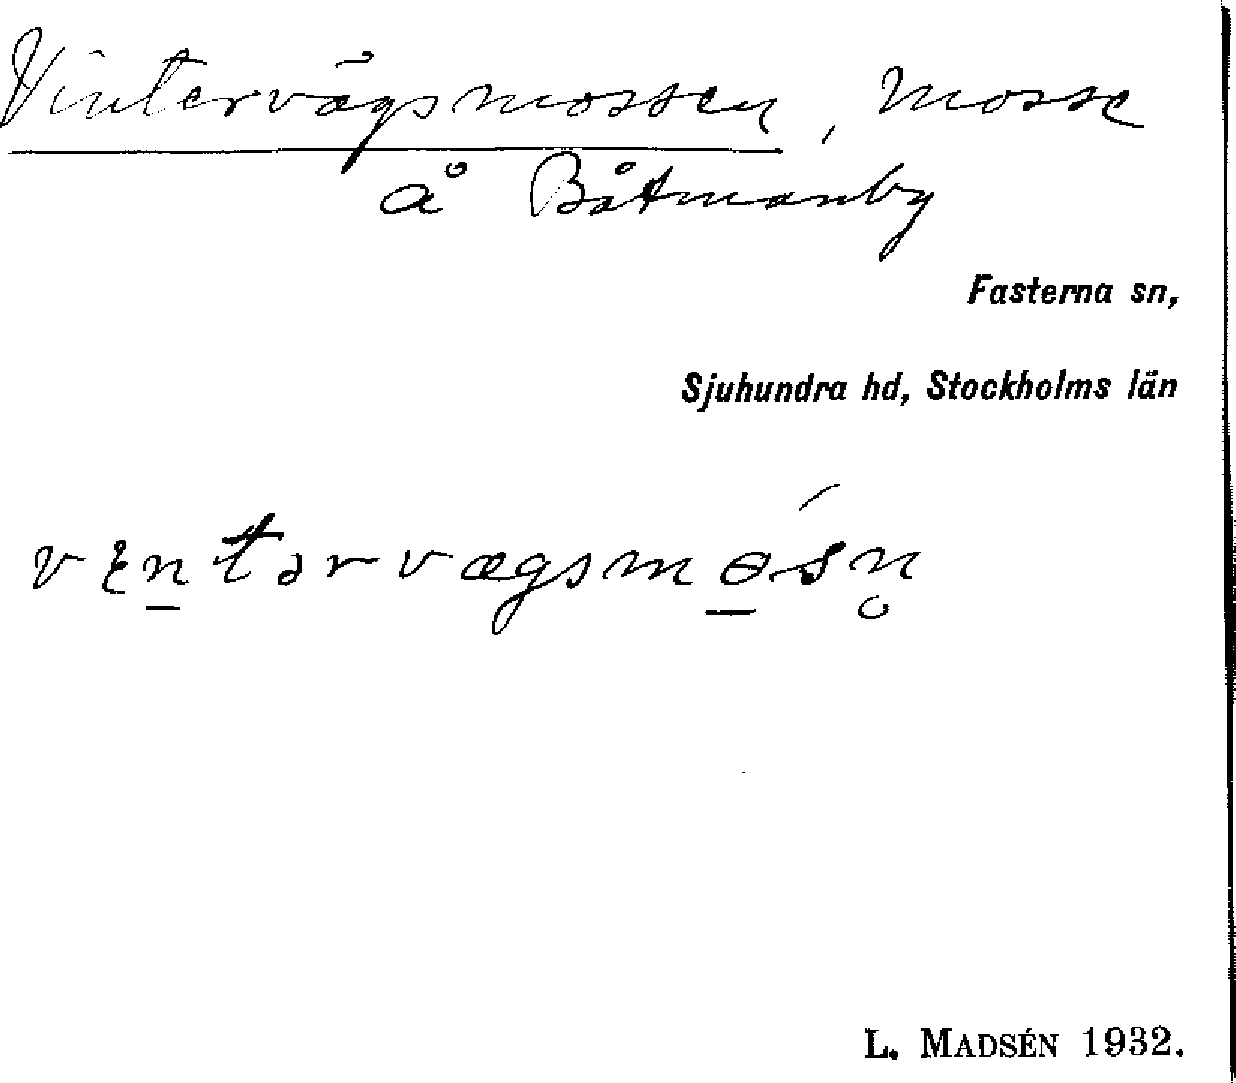 Vintervägsmossen, mosse
å Båtmanby
Fasterna sn,
Sjuhundra hd, Stockholms län
vɛn̲tərvægsmɵ̲́sn̥
L. MADSÉN 1932.